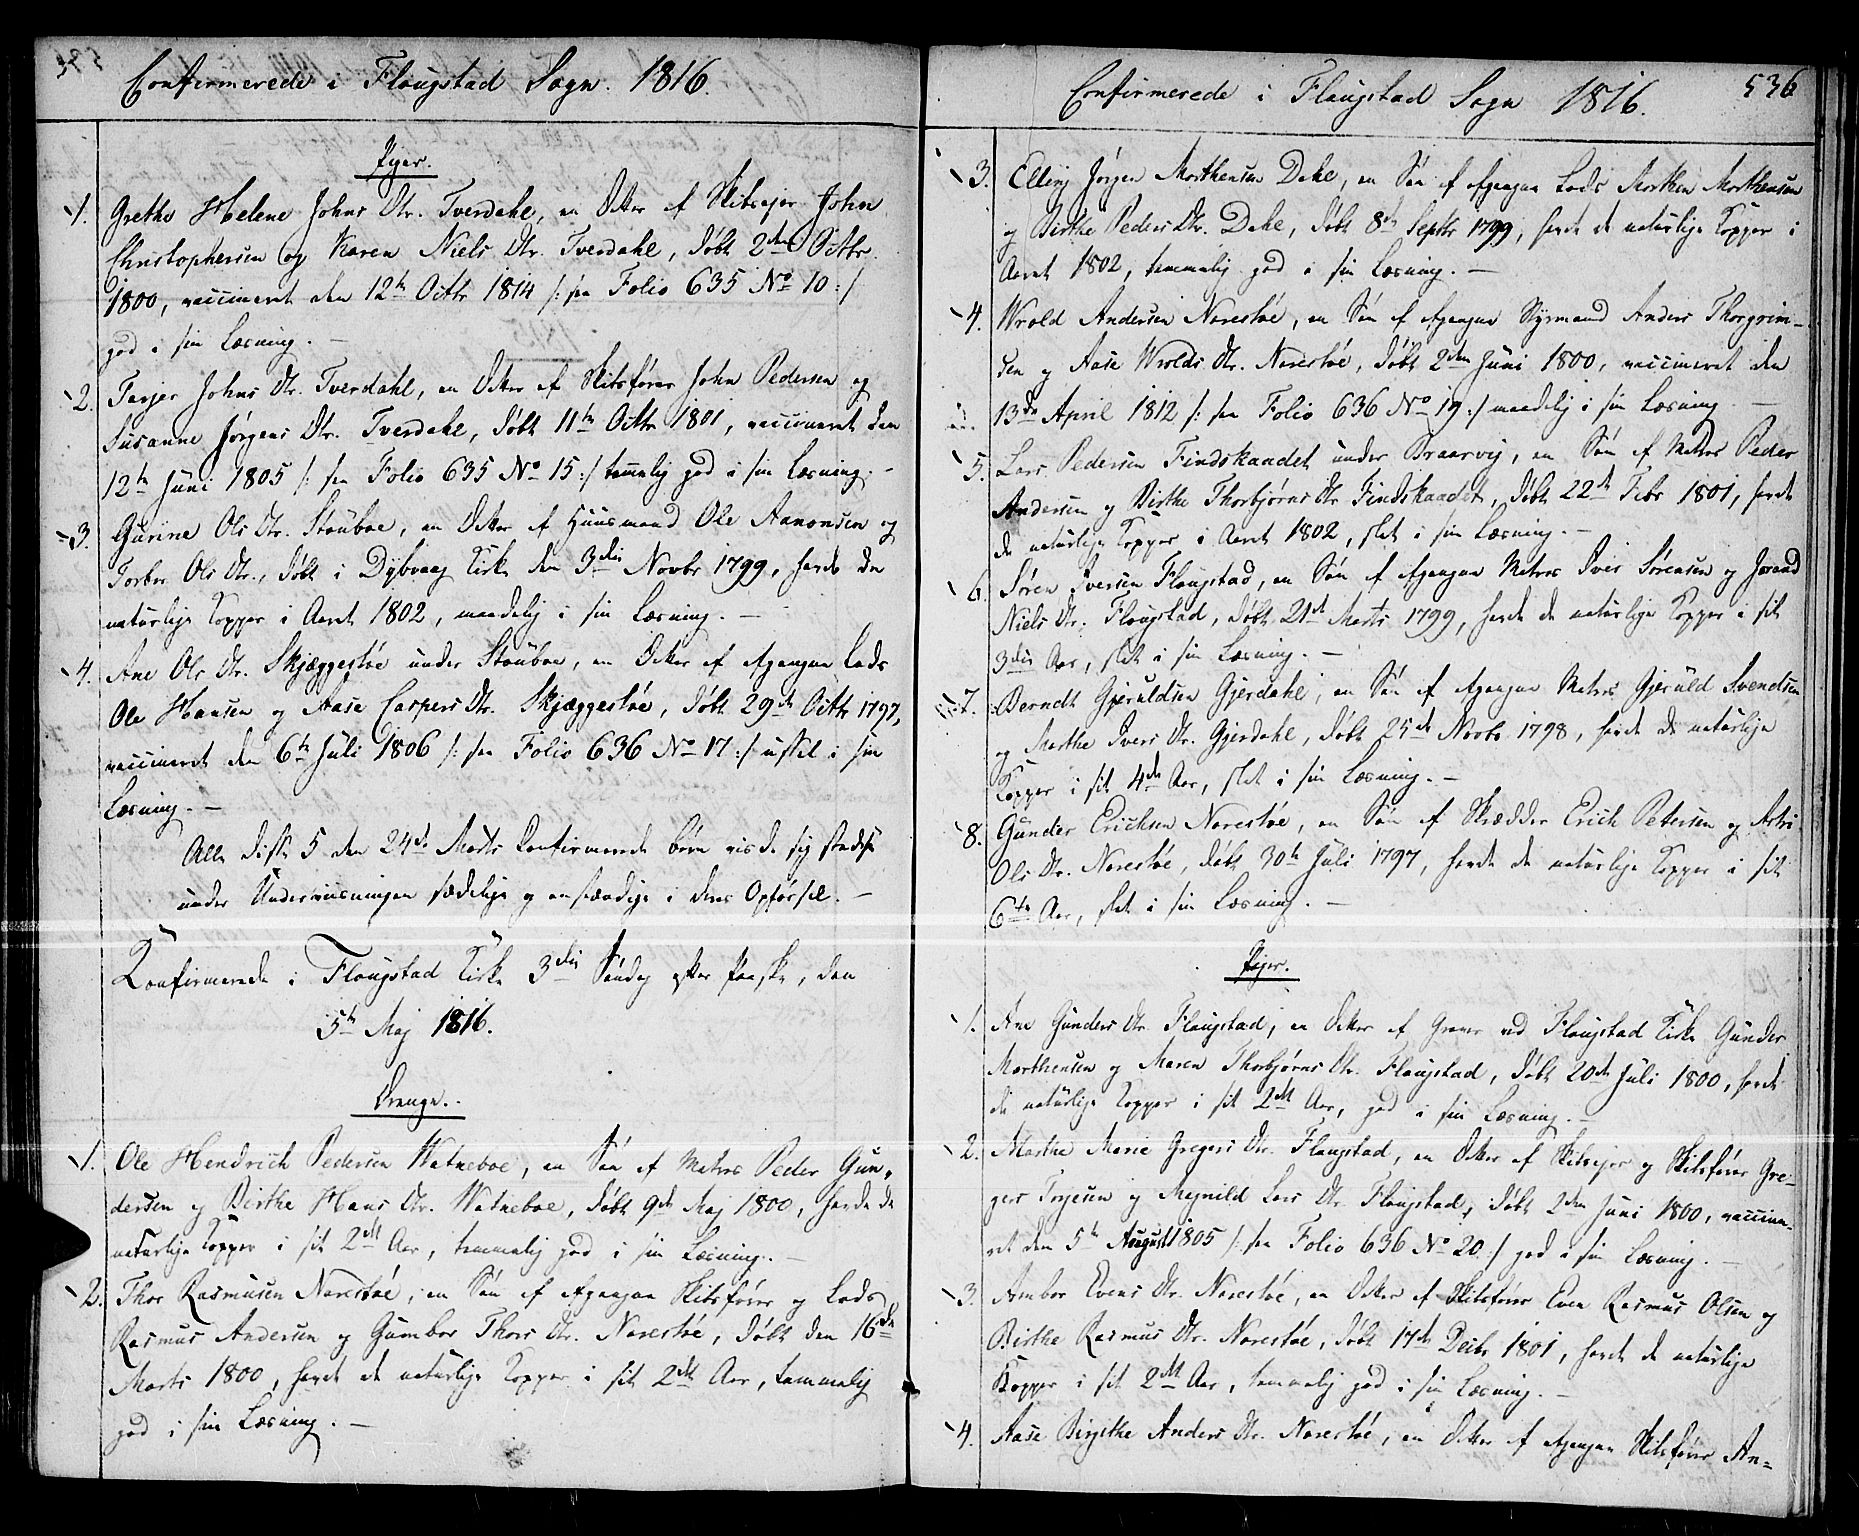 Confirmerede i Flaugstad Sogn. 1816.
Piger.
1. Grethe Helene Johns Dtr. Tverdahl, en Datter af Skibseyer John
Christophersen og Karen Niels Dtr. Tverdahl, døbt 2den Octbr
1800, vaccineret den 12te Octbr 1814 /: see Folio 635 No 10 :/
god i sin Læsning. –
2. Tarjer Johns Dtr. Tverdahl, en Datter af Skibsfører John Pedersen og
Susanne Jørgens Dtr. Tverdahl, døbt 11te Octbr 1801, vaccineret den
12te Juni 1805 /: see Folio 635 No 15 :/ temmelig god i sin Læsning. –
3. Gurine Ols Dtr. Stoüboe, en Datter af Huusmand Ole Aanonsen og
Torbor Ols Dtr., døbt i Dybvaag Kirke den 3die Novbr 1799, havde de
naturlige Kopper i Aaret 1802, maadelig i sin Læsning. –
4. Ane Ols Dtr. Skjæggestøe under Stoüboe, en Datter af Afgangne Lods
Ole Hansen og Aase Caspers Dtr. Skjæggestøe, døbt 29de Octbr 1797,
vaccineret den 6te Juli 1806 /: see Folio 636 No 17 :/ ussel i sin
Læsning. –
Alle disse 5 den 24de Marts Confirmerede børn viste sig stedse
under Underviisningen sædelige og anstændige i deres Opførsel. –
Konfirmerede i Flougstad Kirke 3die Søndag efter Paaske, den
5te Maj 1816.
Drenge.
1. Ole Hendrich Pedersen Watneboe, en Søn af Matros Peder Gun-
dersen og Birthe Hans Dtr. Watneboe, døbt 9de Maj 1800, havde de
naturlige Kopper i sit 2det Aar, temmelig god i sin Læsning. –
2. Thor Rasmusen Narestøe, en Søn af Afgangne Skibsfører og Lods
Rasmus Andersen og Gumbor Thors Dtr. Narestøe, døbt den 16de
Marts 1800, havde de naturlige Kopper i sit 2det Aar, temmelig
god i sin Læsning. –
Confirmerede i Flaugstad Sogn 1816.
536
3. Elling Jørgen Morthensen Dahl, en Søn af Afgangne Lods Morthen Morthensen
og Birthe Peders Dtr. Dahl, døbt 8de Septbr 1799, havde de naturlige Kopper i
Aaret 1802, temmelig god i sin Læsning. –
4. Wrold Andersen Narestøe, en Søn af Afgangne Styrmand Anders Thorgrim-
sen og Aase Wrolds Dtr. Narestøe, døbt 2den Juni 1800, vaccineret den
13de April 1812 /: see Folio 636 No 19 :/ maadelig i sin Læsning –
5. Lars Pedersen Findskaadet under Braarvig, en Søn af Matros Peder
Andersen og Birthe Thorbjørns Dtr Findskaadet, døbt 22de Febr 1801, havde
de naturlige Kopper i Aaret 1802, slet i sin Læsning. –
6. Søren Iversen Flaugstad, en Søn af Afgangne Matros Iver Sørensen og Jorand
Niels Dtr. Flougstad, døbt 21de Marts 1799, havde de naturlige Kopper i sit
3die Aar, slet i sin Læsning. –
7. Berndt Gjeruldsen Gjerdahl, en Søn af Afgangne Matros Gjeruld Svendsen
og Marthe Ivers Dtr. Gjerdahl, døbt 25de Novbr 1798, havde de naturlige
Kopper i sit 4de Aar, slet i sin Læsning. –
8. Gunder Erichsen Narestøe, en Søn af Skrædder Erich Petersen og Astri
Ols Dtr. Narestøe, døbt 30te Juli 1797, havde de naturlige Kopper i sit
6te Aar, slet i sin Læsning. –
Piger.
1. Ane Gunders Dtr. Flaugstad, en Datter af Graver ved Flougstad Kirke Gunder
Morthensen og Maren Thorbjørns Dtr. Flaugstad, døbt 20de Juli 1800, havde
de naturlige Kopper i sit 2det Aar, god i sin Læsning. –
2. Marthe Marie Gregers Dtr. Flaugstad, en Datter af Skibseyer og Skibsfører Gre-
gers Terjesen og Magnild Lars Dtr Flougstad, døbt 2den Juni 1800, vaccine-
ret den 5te August 1805 /: see Folio 636 No 20 :/ god i sin Læsning. –
3. Ambor Evens Dtr. Narestøe, en Datter af Skibsfører Even Rasmus Olsen og
Birthe Rasmus Dtr. Narestøe, døbt 17de Decbr 1801, havde de naturlige
Kopper i sit 2det Aar, temmelig god i sin Læsning. –
4. Aase Birgithe Anders Dtr. Narestøe, en Datter af Afgangne Skibsfører An-